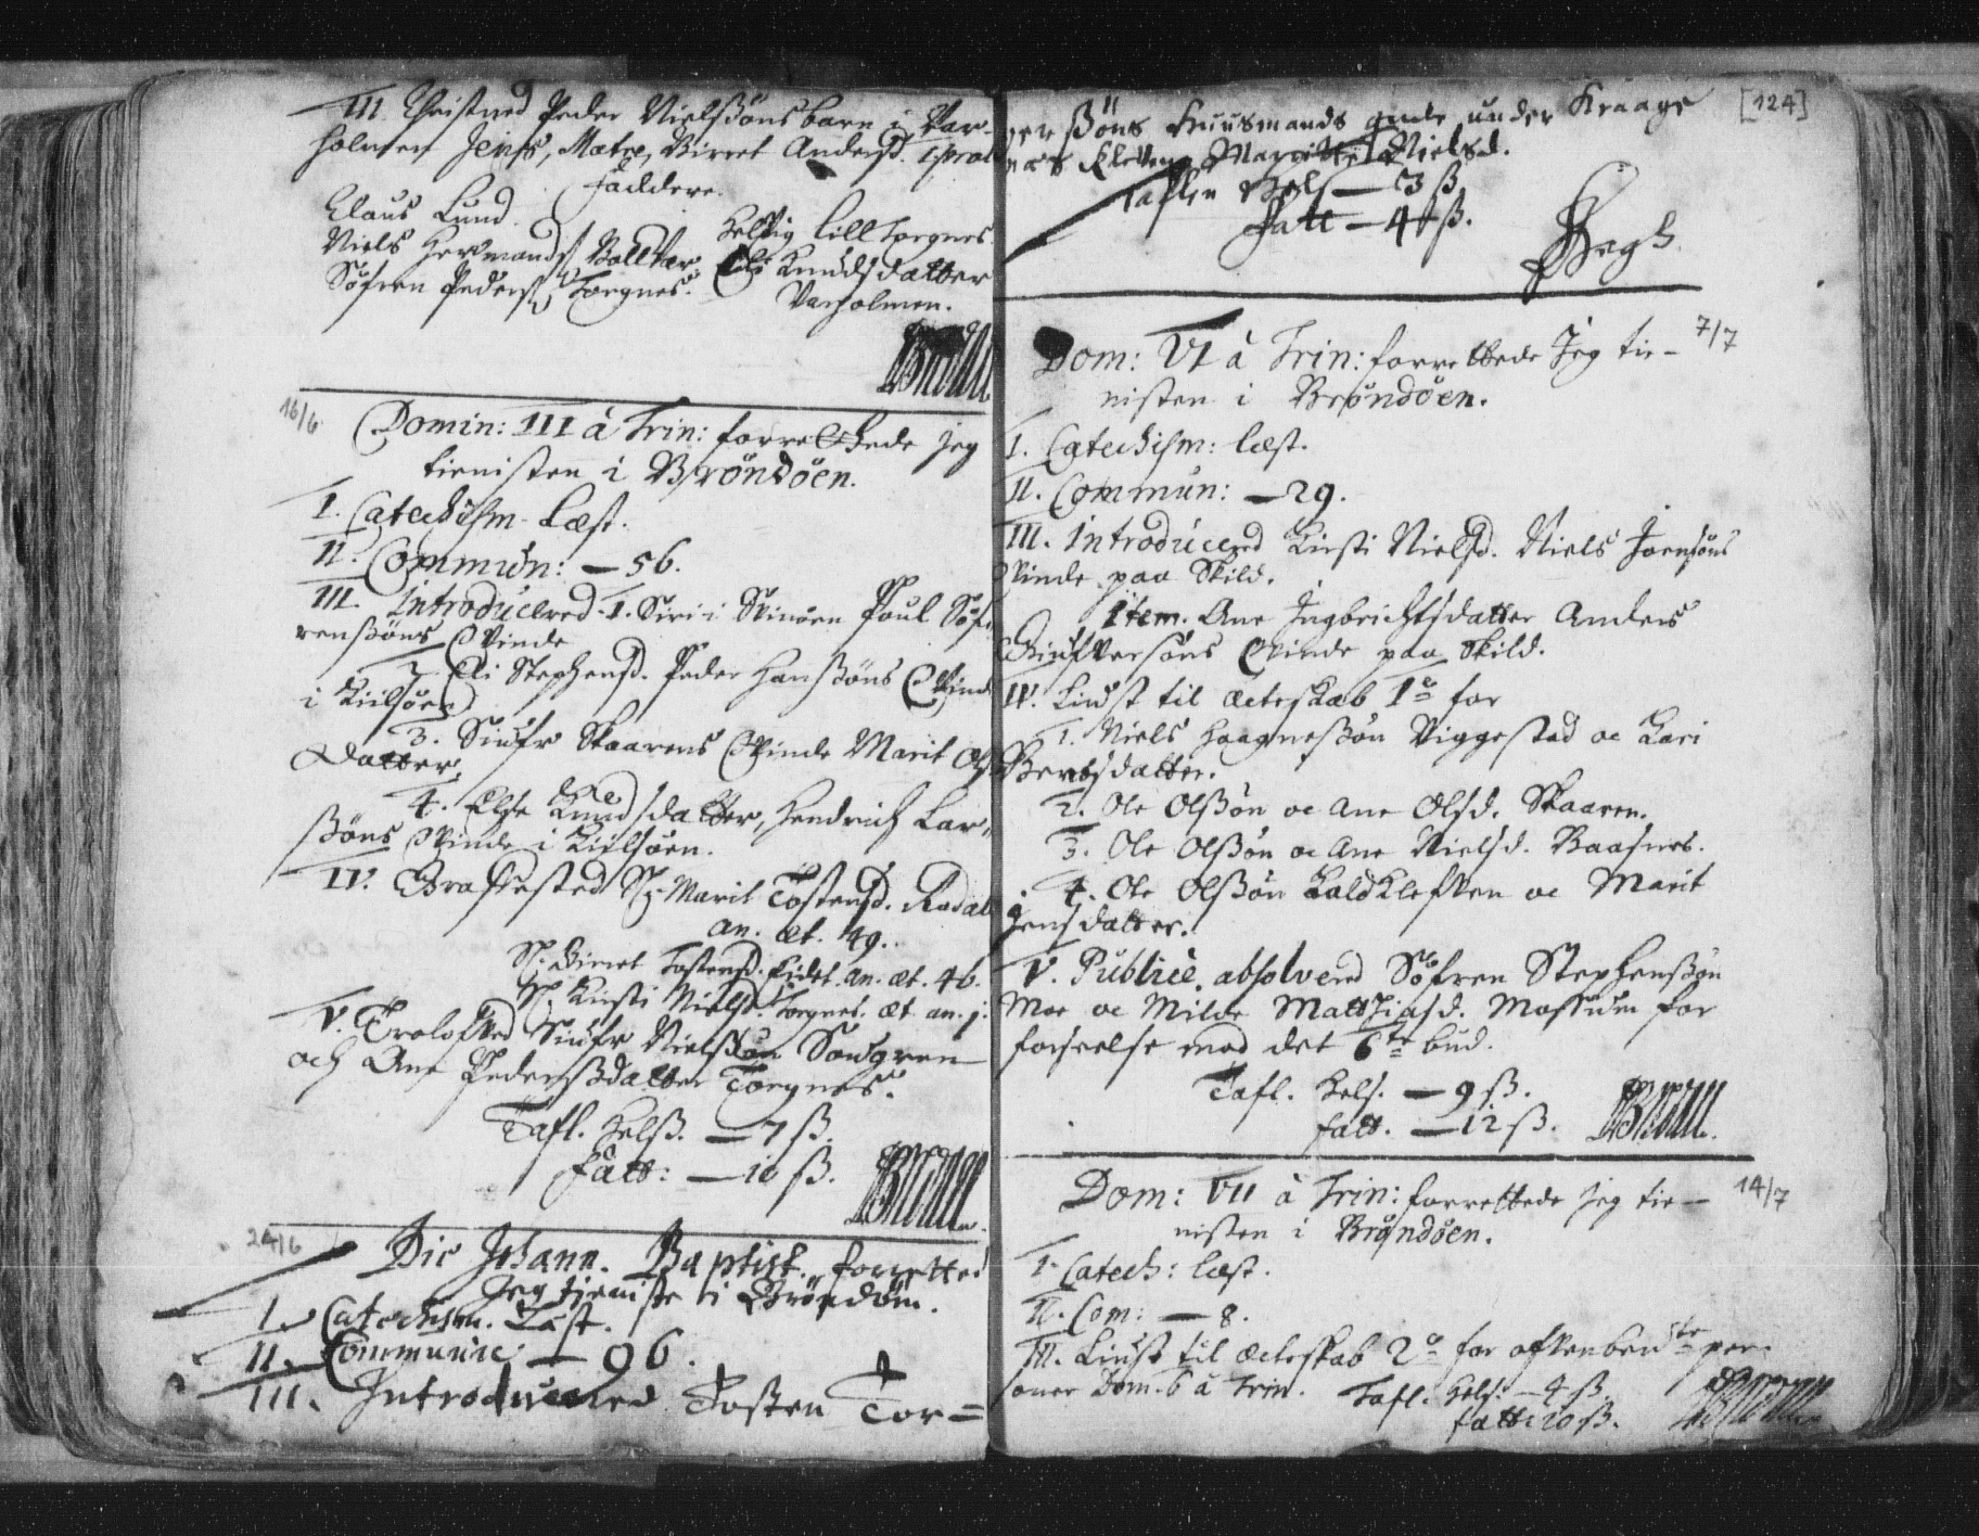 III. Christned Peder Nielssöns barn i Var-
holmen Jens, Matr, Birret Andersd.
Faddere.
Claus Lund.
Niels Hermands
Söfren Peders Torgnes.
Helvig Lill Torgnes.
Knudsdatter
Varholmen.
16/6
Domin: III à Trin: forrettede jeg
tienisten i Bröndöen.
I. Catechism. Læst.
II. Commun: — 56.
III. Introducered. 1. Siri i Skinöen Poul Söf-
renssöns Qvinde
2. Eli Stephensd. Peder Hanssöns Qvinde
i Kiilsöen
3. Siufr Skaarens Qvinde Marit Ols
Datter.
4. Else Knudsdatter, Hendrich Lar-
ssöns Qvinde i Kiilsöen.
IV. Graffested Sl. Marit Tostensd.
an. æt. 49.
Sl. Birret Tostensd. Eidet. an. æt. 46.
Sl. Kirsti Nielsd. Torgnes. æt an. j.
V. Troloffved Siufr Nielssön
och Ane Pederssdatter Torgnes.
Tafl. Helss. — 7 ß.
Fatt: — 10 ß.
24/6
Die Johann. Baptist. forretted
Jeg tieniste i Bröndöen.
I. Catechism. Læst.
II. Communic — 96.
III. Introducered Tosten Tor=
[124]
gerssöns Huusmands qvinde under Kraage
næs Kleven Maritte Nielsd.
Taflen Hels — 3 ß
Fatt — 4 ß.
7/7
Dom: VI à Trin: forrettede Jeg tie-
nisten i Bröndöen.
I. Catechism: læst.
II. Commun: — 29.
III. Introducered Kirsti Nielsd. Niels Joensöns
Qvinde paa Skild.
Item. Ane Ingbrichtsdatter Anders
Qvinde paa Skild.
IV. Liust til ecteskab 1º for
1. Niels Haagnessön Viggestad oc Kari
Berntsdatter.
2. Ole Olssön oc Ane Olsd. Skaaren.
3. Ole Olssön oc Ane Nielsd. Baasnes.
4. Ole Olssön Kaldkleffven oc Marit
Jensdatter.
V. Publicè absolvered Söfren Stephenssön
Moe oc Milde Matthiasd. Mossum for
forseelse mod det 6te bud.
Tafl. Hels. — 9 ß.
Fatt. — 12 ß.
14/7
Dom: VII à Trin: forrettede jeg tie-
nisten i Bröndöen.
I. Catech: læst.
II. Com: — 8.
III. Liust til ecteskab 2º for per-
soner Dom. 6 à Trin. Tafl. Hels: — 4 ß.
Fatt: 10 ß.